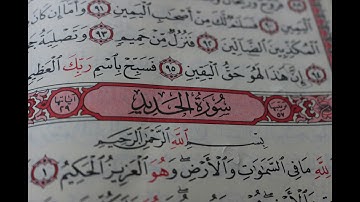 فَسَلَٰمٌ لَّكَ مِنْ أَصْحَٰبِ ٱلْيَمِينِ ٩١ وَأَمَّآ إِن كَانَ
ٱلْمُكَذِّبِينَ ٱلضَّآلِّينَ ٩٢ فَنُزُلٌ مِّنْ حَمِيمٍ ٩٣ وَتَصْلِيَةُ
٩٤ إِنَّ هَٰذَا لَهُوَ حَقُّ ٱلْيَقِينِ ٩٥ فَسَبِّحْ بِٱسْمِ رَبِّكَ ٱلْعَظِيمِ
٥٧ سُورَةُ الْحَدِيدِ آيَاتُهَا ٢٩
بِسْمِ ٱللَّهِ ٱلرَّحْمَٰنِ ٱلرَّحِيمِ
لِلَّهِ مَا فِي ٱلسَّمَٰوَٰتِ وَٱلْأَرْضِ وَهُوَ ٱلْعَزِيزُ ٱلْحَكِيمُ ١